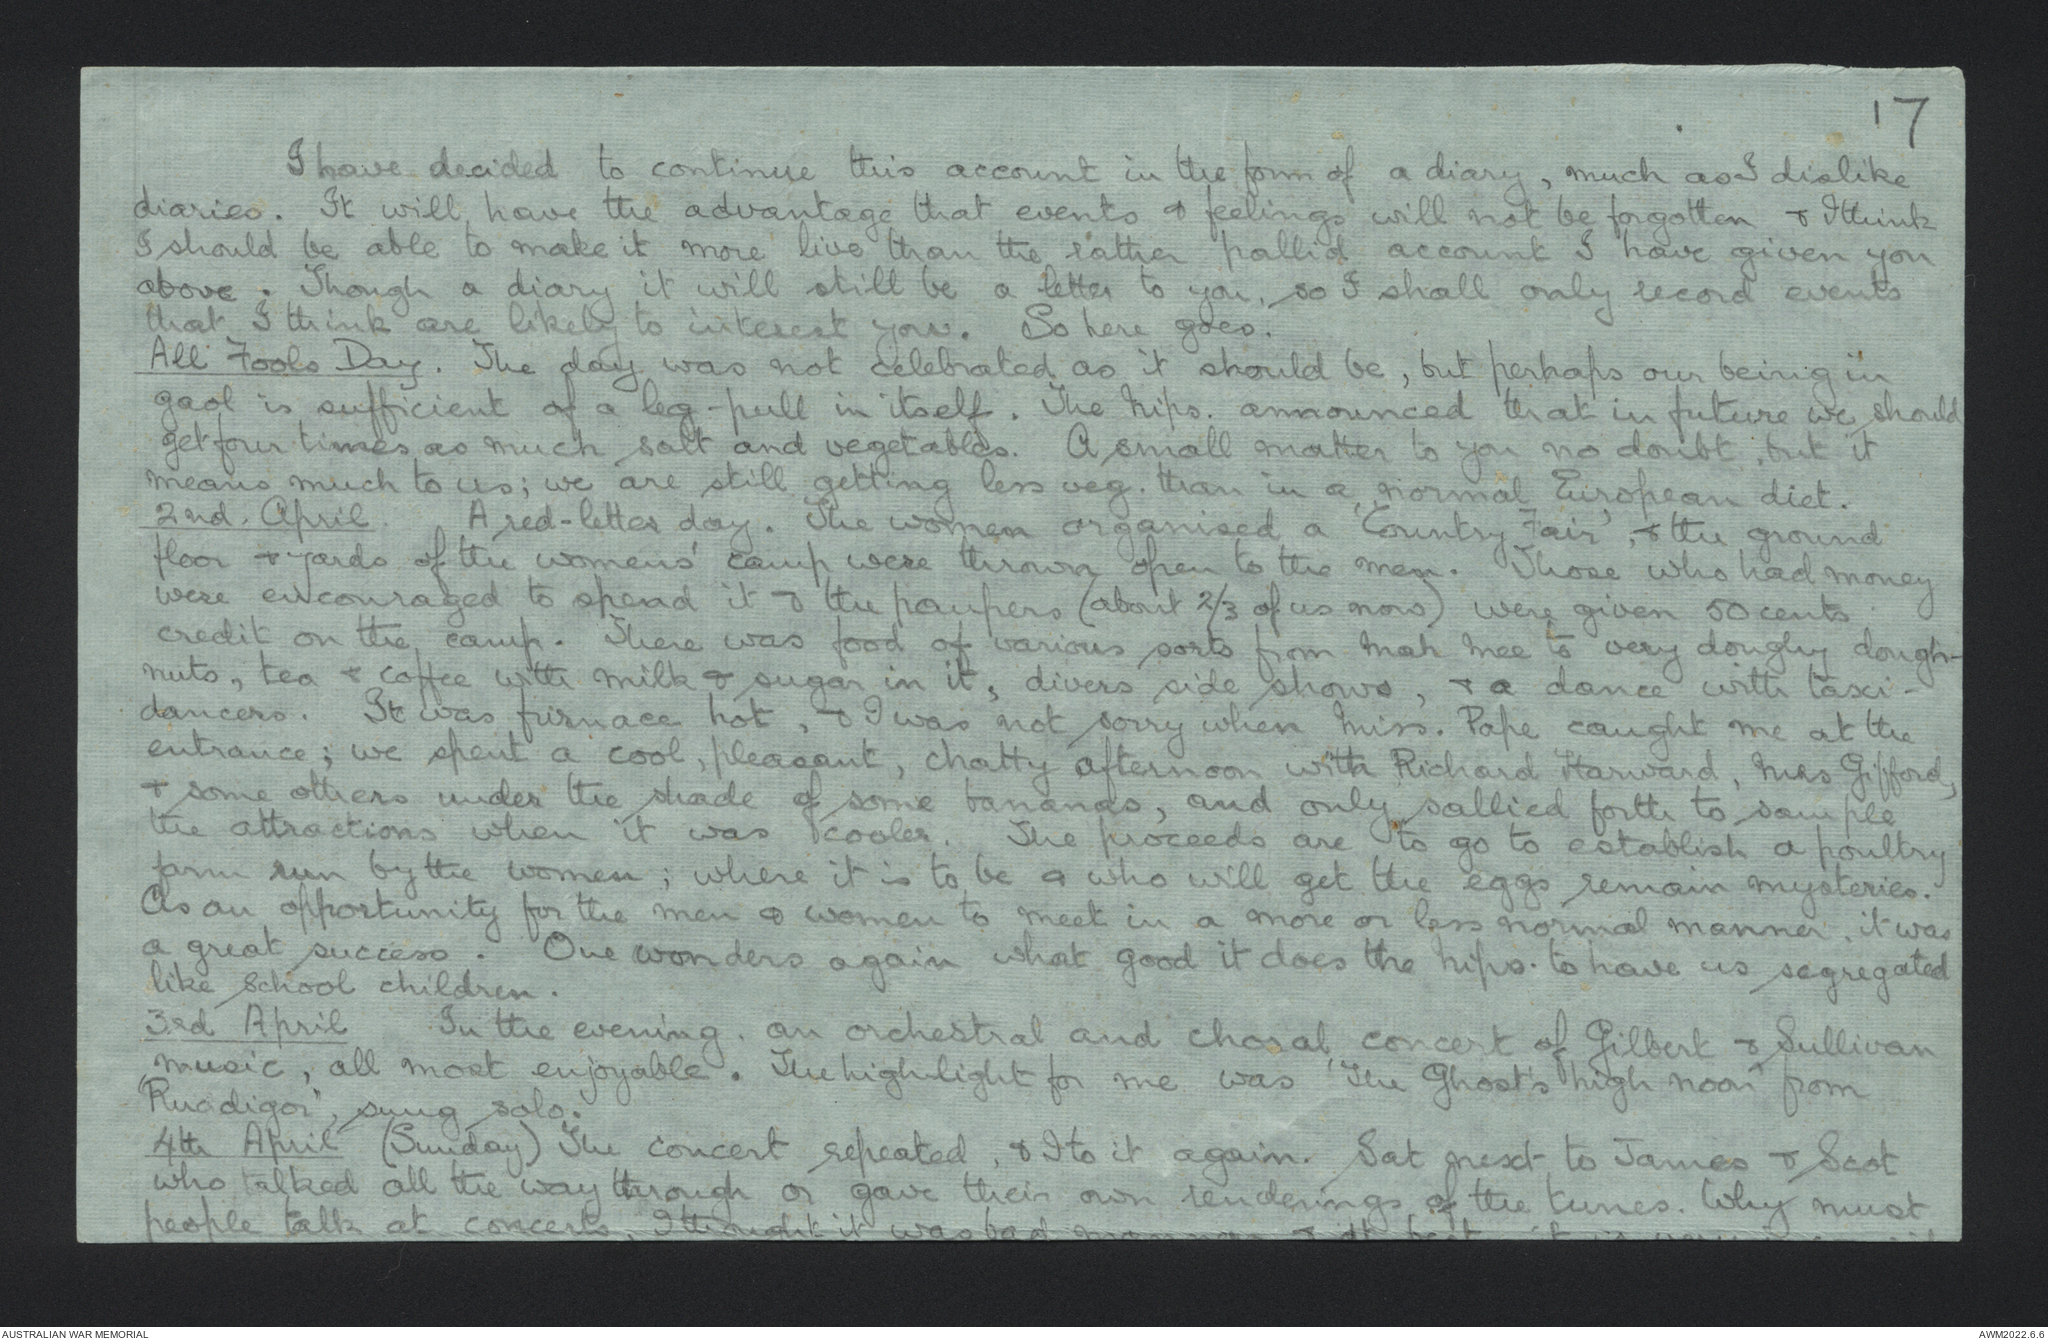 17
I have decided to continue this account in the form of a diary, much as I dislike
diaries. It will have the advantage that events & feelings will not be forgotten & I think
I should be able to make it more live than the rather pallid account I have given you
above. Though a diary it will still be a letter to you, so I shall only record events
that I think are likely to interest you. So here goes.
All Fools Day. The day was not celebrated as it should be, but perhaps our being in
gaol is sufficient of a leg-pull in itself. The Nips. announced that in future we should
get four times as much salt and vegetables. A small matter to you no doubt, but it
means much to us; we are still getting less veg. than in a normal European diet.
2nd. April. A red-letter day. The women organised a 'Country Fair', & the ground
floor & yards of the womens' camp were thrown open to the men. Those who had money
were encouraged to spend it & the paupers (about 2/3 of us now) were given 50 cents
credit on the camp. There was food of various sorts from mah mee to very doughy dough-
nuts, tea & coffee with milk & sugar in it, divers side shows, & a dance with taxi-
dancers. It was furnace hot, & I was not sorry when Miss. Pape caught me at the
entrance; we spent a cool, pleasant, chatty afternoon with Richard Harward, Mrs Gifford,
& some others under the shade of some bananas, and only sallied forth to sample
the attractions when it was cooler. The proceeds are to go to establish a poultry
farm run by the women; where it is to be & who will get the eggs remain mysteries.
As an opportunity for the men & women to meet in a more or less normal manner, it was
a great success. One wonders again what good it does the Nips. to have us segregated
like school children.
3rd April In the evening. an orchestral and choral concert of Gilbert & Sullivan
music, all most enjoyable. The highlight for me was 'The Ghost's high noon' from
'Ruddigor', sung solo.
4th April (Sunday) The concert repeated, & I to it again. Sat next to James & Scot
who talked all the way through or gave their own renderings of the tunes. Why must
people talk at concerts, I thought it was bad manners
AUSTRALIAN WAR MEMORIAL
AWM2022.6.6